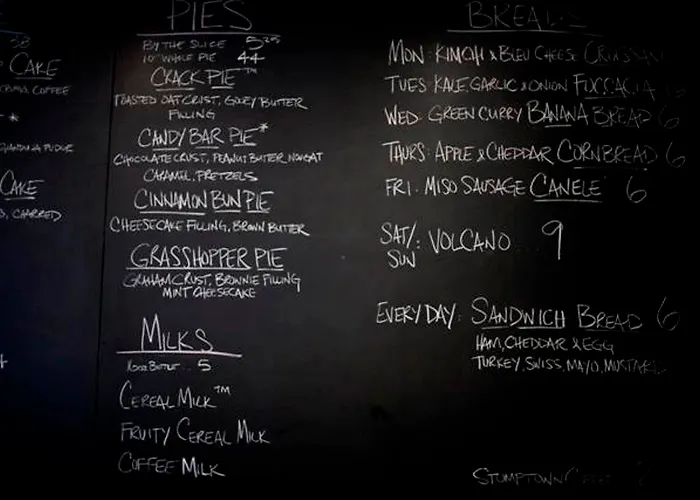 38
CAKE
COFFEE
*
FUDGE
CAKE
CHARRED
PIES
BY THE SLICE 5.25
10" WHOLE PIE 44
CRACK PIE™
TOASTED OAT CRUST, GOOEY BUTTER
FILLING
CANDY BAR PIE*
CHOCOLATE CRUST, PEANUT BUTTER NOUGAT
CARAMEL, PRETZELS
CINNAMON BUN PIE
CHEESECAKE FILLING, BROWN BUTTER
GRASSHOPPER PIE
GRAHAM CRUST, BROWNIE FILLING
MINT CHEESECAKE
MILKS
BOTTLE 5
CEREAL MILK™
FRUITY CEREAL MILK
COFFEE MILK
BREAD
MON: KIMCHI & BLEU CHEESE CROISSANT
TUES: KALE, GARLIC & ONION FOCCACIA
WED: GREEN CURRY BANANA BREAD 6
THURS: APPLE & CHEDDAR CORNBREAD 6
FRI: MISO SAUSAGE CANELE 6
SAT/: VOLCANO 9
SUN
EVERYDAY: SANDWICH BREAD 6
HAM, CHEDDAR & EGG
TURKEY, SWISS, MAYO, MUSTARD
STUMPTOWN